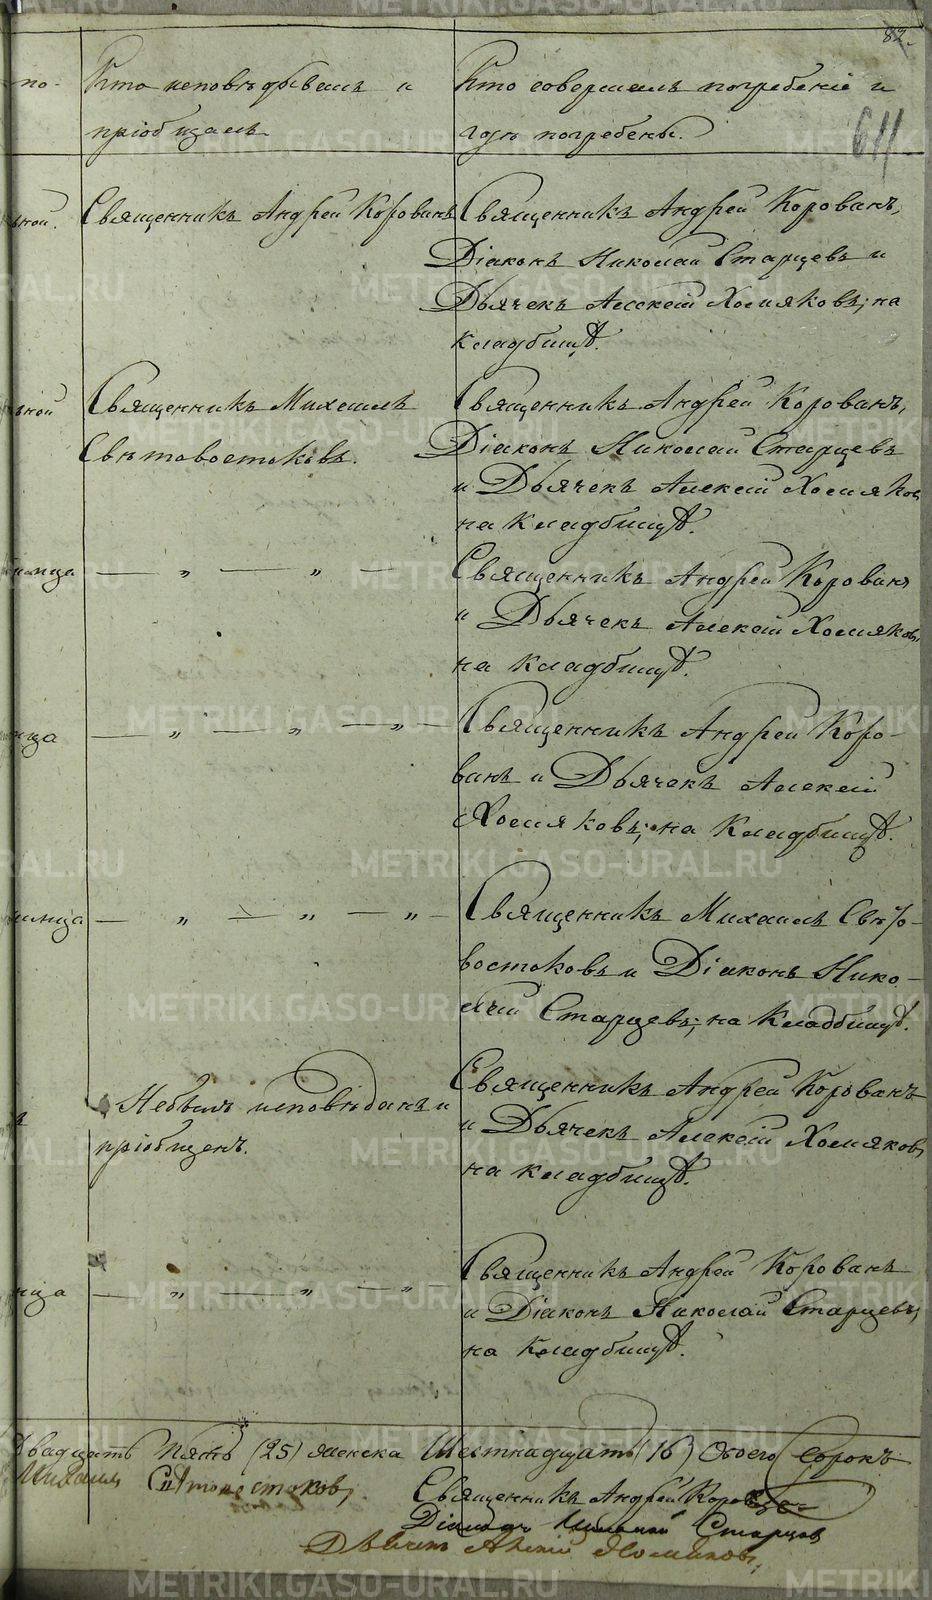 82.
611
по-
Кто исповѣдывалъ и
пріобщалъ.
Кто совершалъ погребеніе и
гдѣ погребены.
ьной.
Священникъ Андрей Корованъ
Священникъ Андрей Корованъ,
Діаконъ Николай Старцевъ и
Дьячекъ Алексей Хомяковъ; на
кладбищѣ.
ьной
Священникъ Михаилъ
Свѣтовостоковъ.
Священникъ Андрей Корованъ,
Діаконъ Николай Старцевъ
и Дьячекъ Алексей Хомяков,
на кладбищѣ.
— „ — „ —
Священникъ Андрей Корованъ
и Дьячекъ Алексей Хомяков,
на кладбищѣ.
ица
— „ — „ — „ —
Священникъ Андрей Коро-
ванъ и Дьячекъ Алексей
Хомяковъ; на Кладбищѣ.
— „ — „ — „ —
Священникъ Михаилъ Свѣто-
востоковъ и Діаконъ Нико-
лай Старцевъ; на Кладбищѣ.
ъ
Небылъ исповѣданъ и
пріобщенъ.
Священникъ Андрей Корованъ
и Дьячекъ Алексей Хомяков,
на кладбищѣ.
ица
— „ — „ — „ —
Священникъ Андрей Корованъ
и Діаконъ Николай Старцевъ,
на кладбищѣ.
Двадцать пять (25) женска Шестнадцать (16) Обоего Сорокъ
Михаилъ Свѣтовостоковъ,
Священникъ Андрей Корованъ
Діаконъ Николай Старцов
Дьячекъ Алексей Хомяковъ,
METRIKI.GASO-URAL.RU